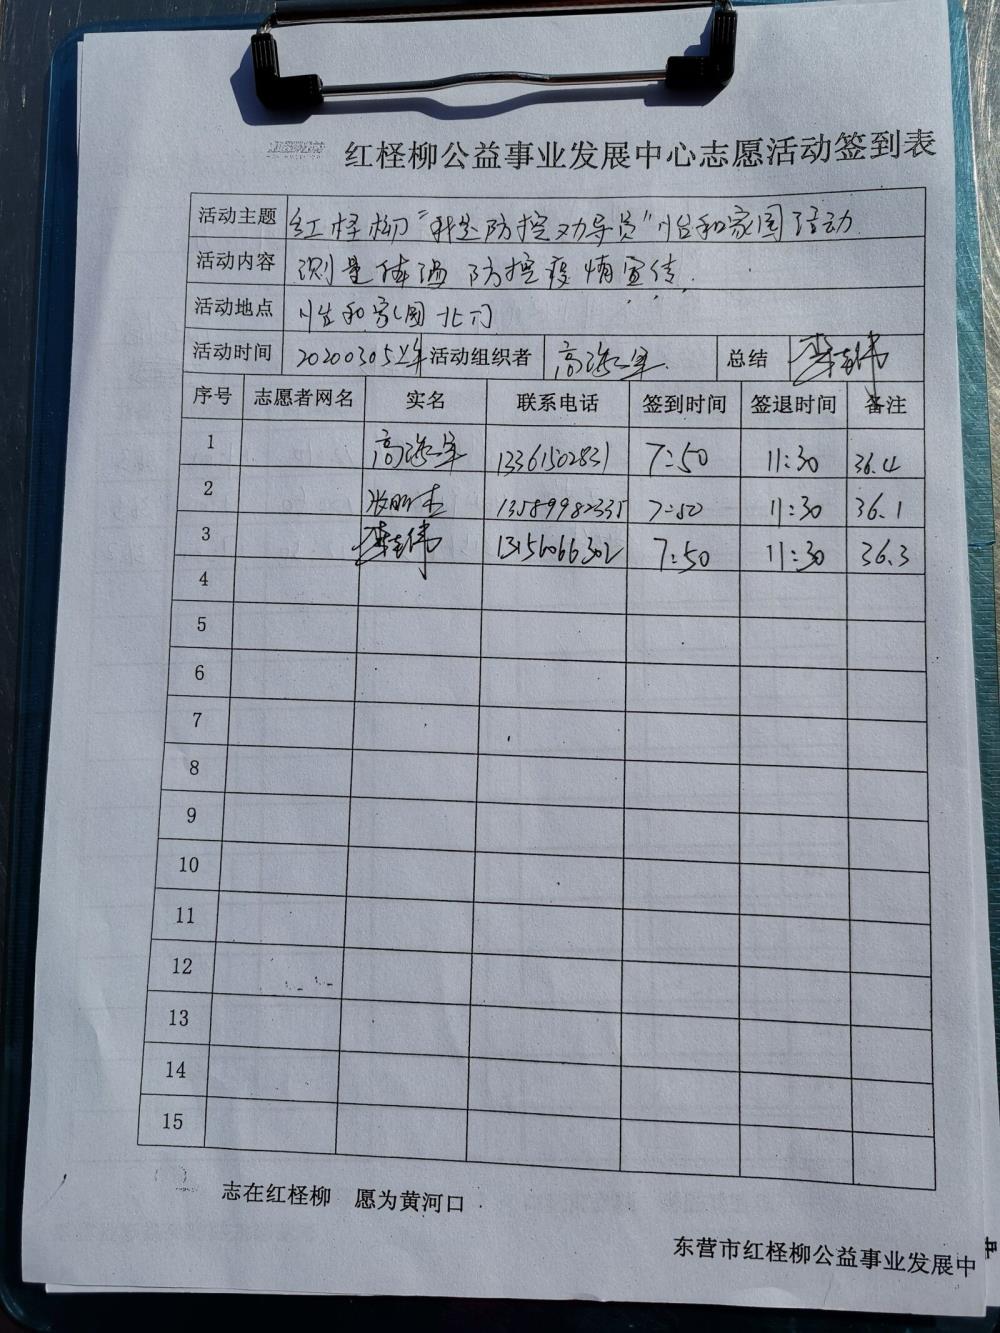 红柽柳公益事业发展中心志愿活动签到表
活动主题 红柽柳"科迅防控劝导员"怡和家园活动
活动内容 测量体温 防控疫情宣传.
活动地点 怡和家园北门
活动时间 20200305上午 活动组织者 高强军 总结
序号 志愿者网名 实名 联系电话 签到时间 签退时间 备注
1 高强军 13361502831 7:50 11:30 36.4
2 13589982335 7:50 11:30 36.1
3 13156066302 7:50 11:30 36.3
4
5
6
7
8
9
10
11
12
13
14
15
志在红柽柳 愿为黄河口
东营市红柽柳公益事业发展中